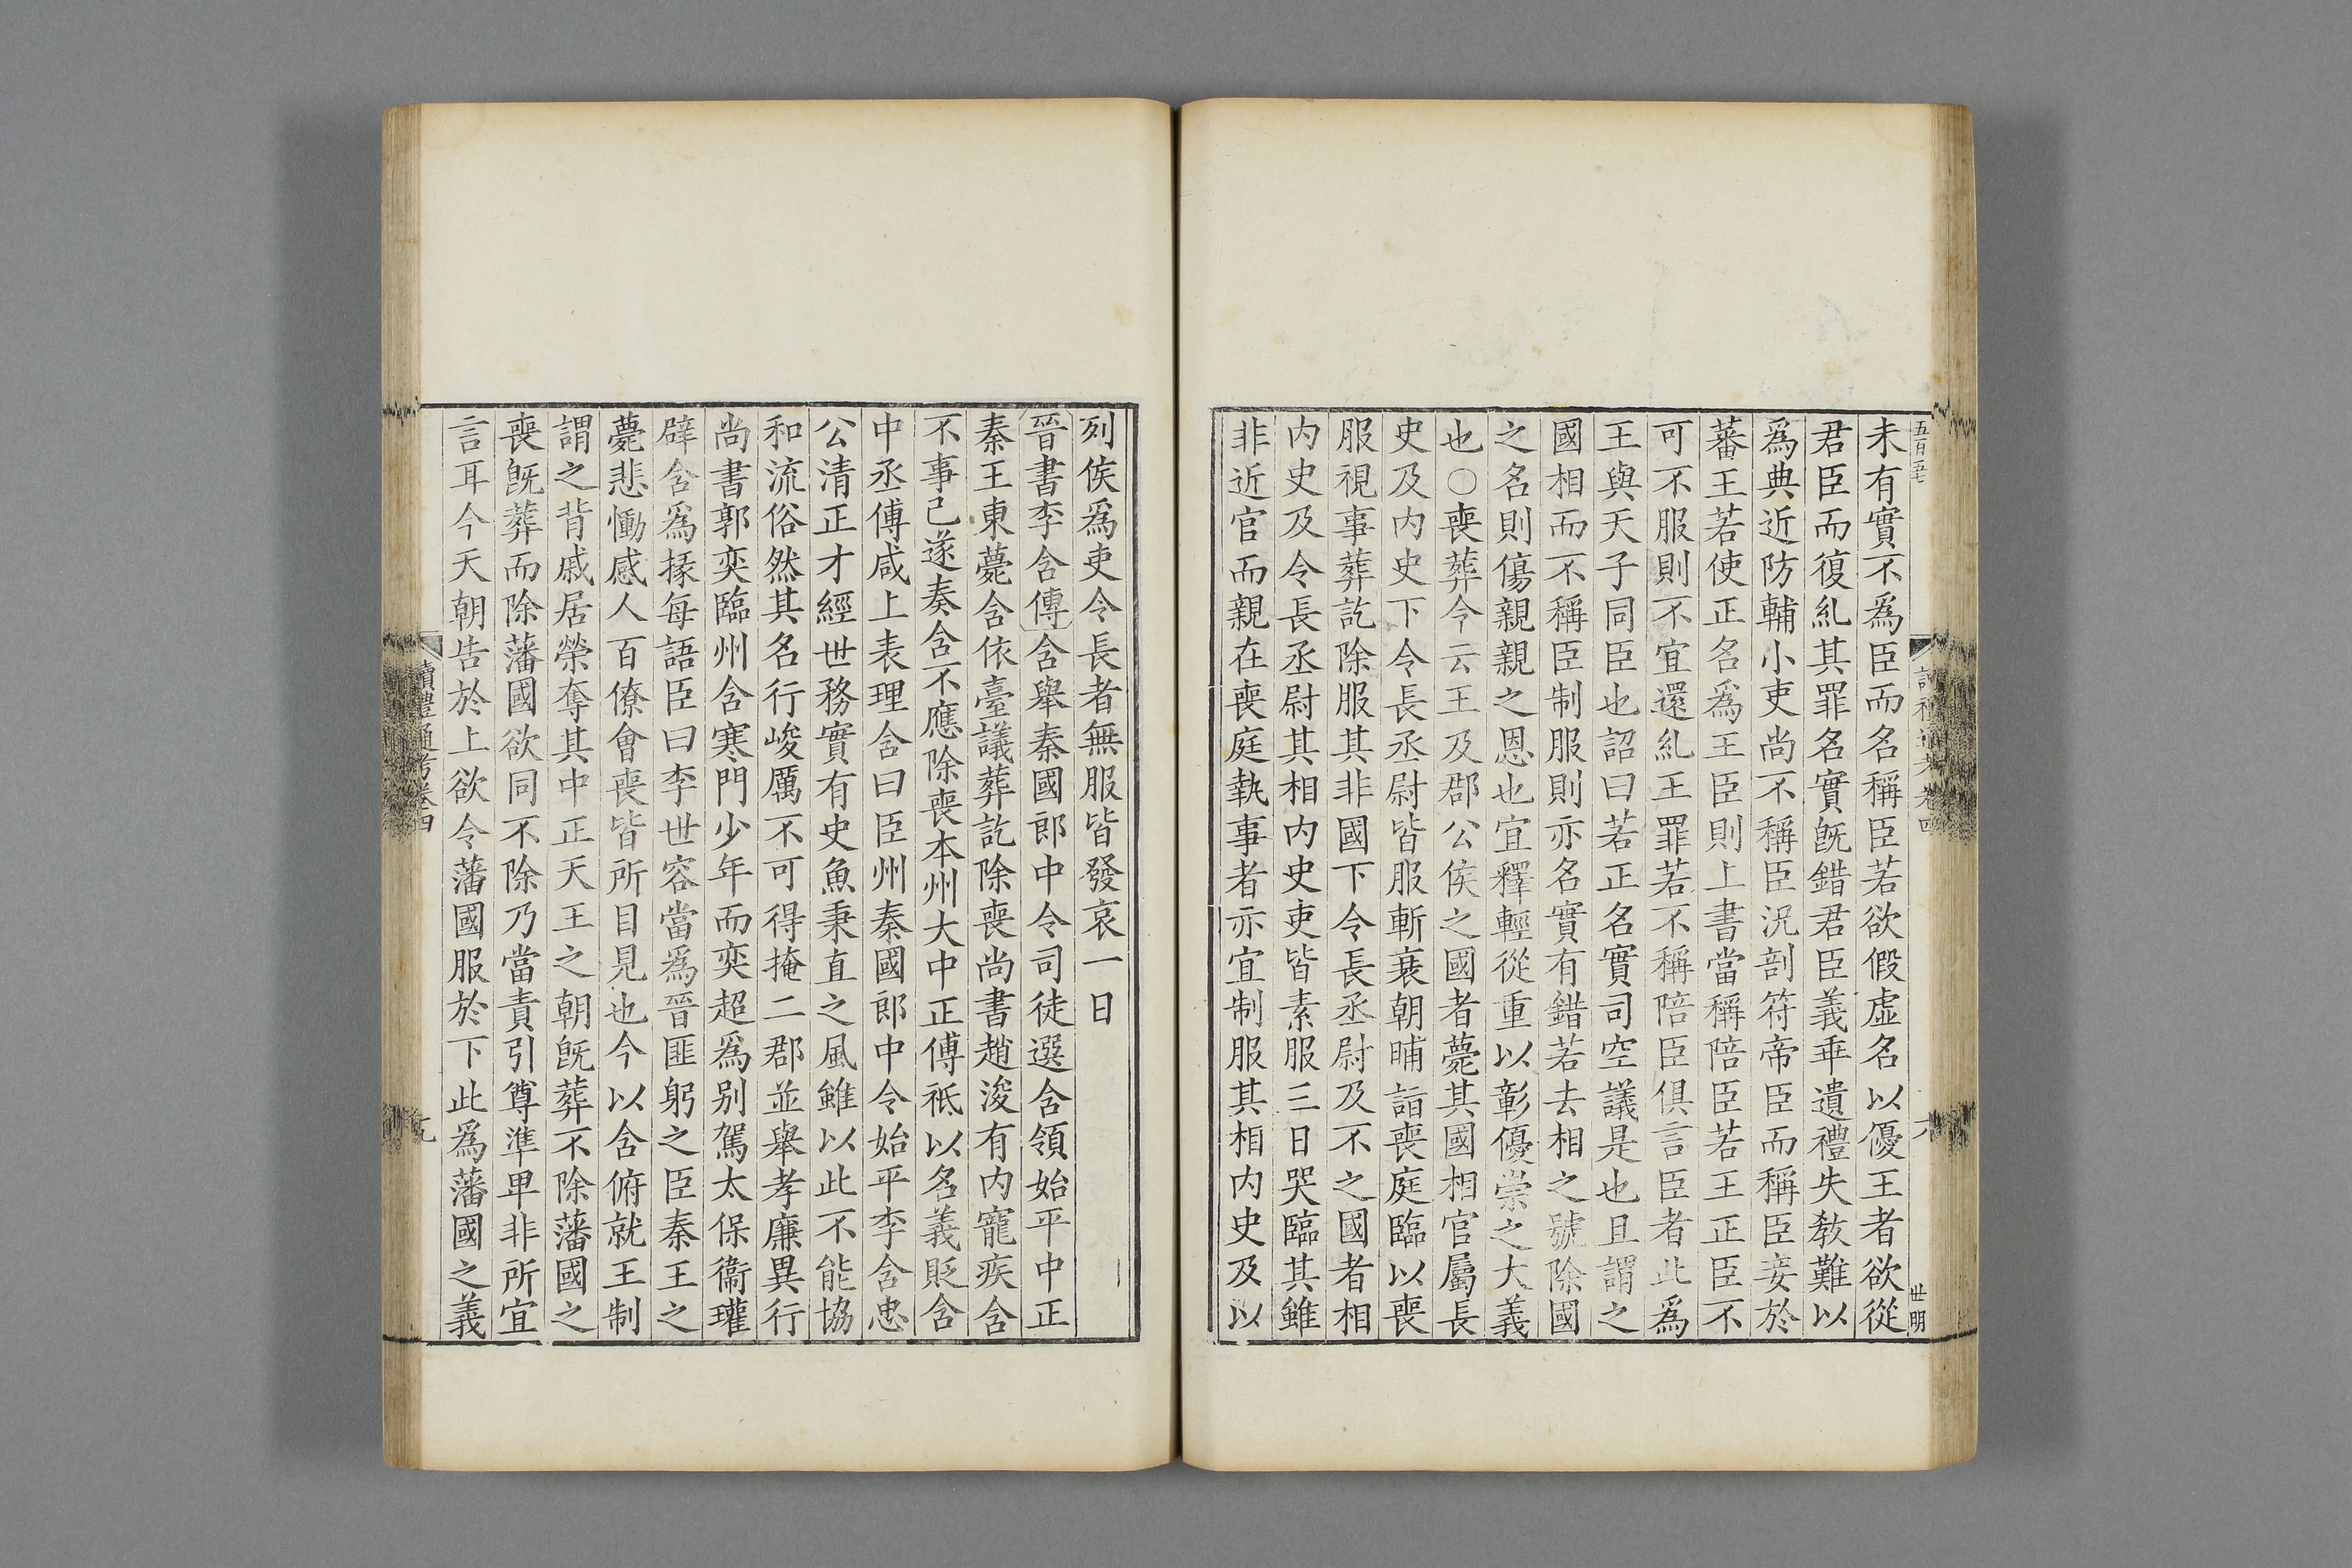 未有實不爲臣而名稱臣若欲假虛名以優王者欲從
君臣而復糺其罪名實旣錯君臣義乖遺禮失教難以
爲典近防輔小吏尚不稱臣況剖符帝臣而稱臣妾於
蕃王若使正名爲王臣則上書當稱陪臣若王正臣不
可不服則不宜還糺王罪若不稱陪臣俱言臣者此爲
王與天子同臣也詔曰若正名實司空議是也且謂之
國相而不稱臣制服則亦名實有錯若去相之號除國
之名則傷親親之恩也宜釋輕從重以彰優崇之大義
也〇喪葬令云王及郡公侯之國者薨其國相官屬長
史及内史下令長丞尉皆服斬衰朝晡詣喪庭臨以喪
服視事葬訖除服其非國下令長丞尉及不之國者相
内史及令長丞尉其相内史吏皆素服三日哭臨其雖
非近官而親在喪庭執事者亦宜制服其相内史及以
列侯爲吏令長者無服皆發哀一日
晉書李含傳含舉秦國郎中令司徒選含領始平中正
秦王東薨含依臺議葬訖除喪尚書趙浚有内寵疾含
不事己遂奏含不應除喪本州大中正傅祗以名義貶含
中丞傅咸上表理含曰臣州秦國郎中令始平李含忠
公清正才經世務實有史魚秉直之風雖以此不能協
和流俗然其名行峻厲不可得掩二郡並舉孝廉異行
尚書郭奕臨州含寒門少年而奕超爲别駕太保衞瓘
辟含爲掾每語臣曰李世容當爲晉匪躬之臣秦王之
薨悲慟感人百僚會喪皆所目見也今以含俯就王制
謂之背戚居榮奪其中正天王之朝旣葬不除藩國之
喪旣葬而除藩國欲同不除乃當責引尊準卑非所宜
言耳今天朝告於上欲令藩國服於下此爲藩國之義
讀禮通考卷四
世明